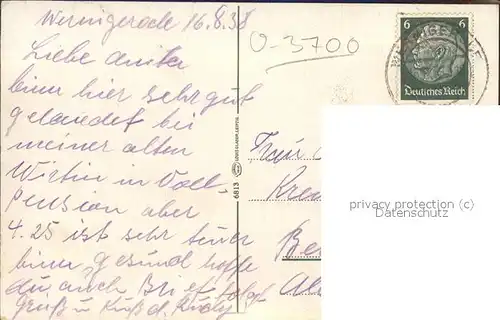 Wernigerode 16.8.38
Liebe Anita
binn hier sehr gut
gelandet bei
meiner alten
Wirtin in Voll
Pension aber
4.25 ist sehr teuer
binn gesund hoffe
du auch Brief folgt
Gruß u Kuß d. Rudy
O-3700
6
6
Deutsches Reich
LOUIS GLASER, LEIPZIG
6813
Frau
privacy protection (c)
Datenschutz